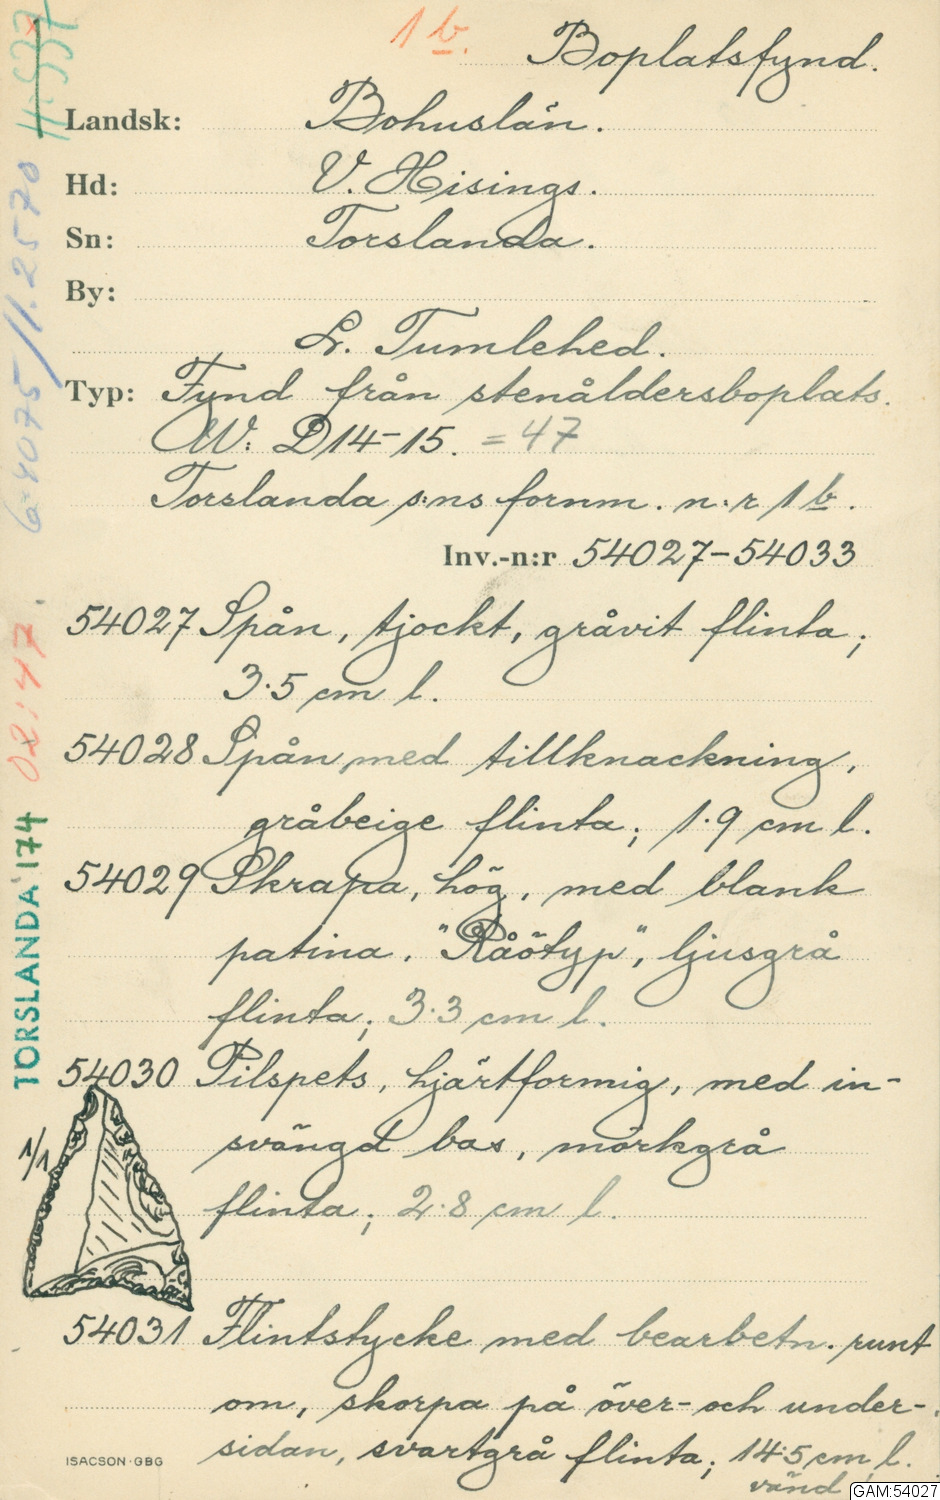 1 b.
Boplatsfynd.
Landsk: Bohuslän.
Hd: V. Hisings.
Sn: Torslanda.
By:
L. Tumlehed.
Typ: Fynd från stenåldersboplats.
W: D14-15. = 47
Torslanda s:ns fornm. n:r 1 b.
Inv.-n:r 54027-54033
54027 Spån, tjockt, gråvit flinta;
3.5 cm l.
54028 Spån med tillknackning,
gråbeige flinta; 1.9 cm l.
54029 Skrapa, hög, med blank
patina. "Råötyp", ljusgrå
flinta; 3.3 cm l.
54030 Pilspets, hjärtformig, med in-
svängd bas, mörkgrå
flinta; 2.8 cm l.
1/1
54031 Flintstycke med bearbetn. runt
om, skorpa på över- och under-
sidan, svartgrå flinta; 14.5 cm l.
vänd
ISACSON·GBG
GAM:54027
TORSLANDA 174
02:47.